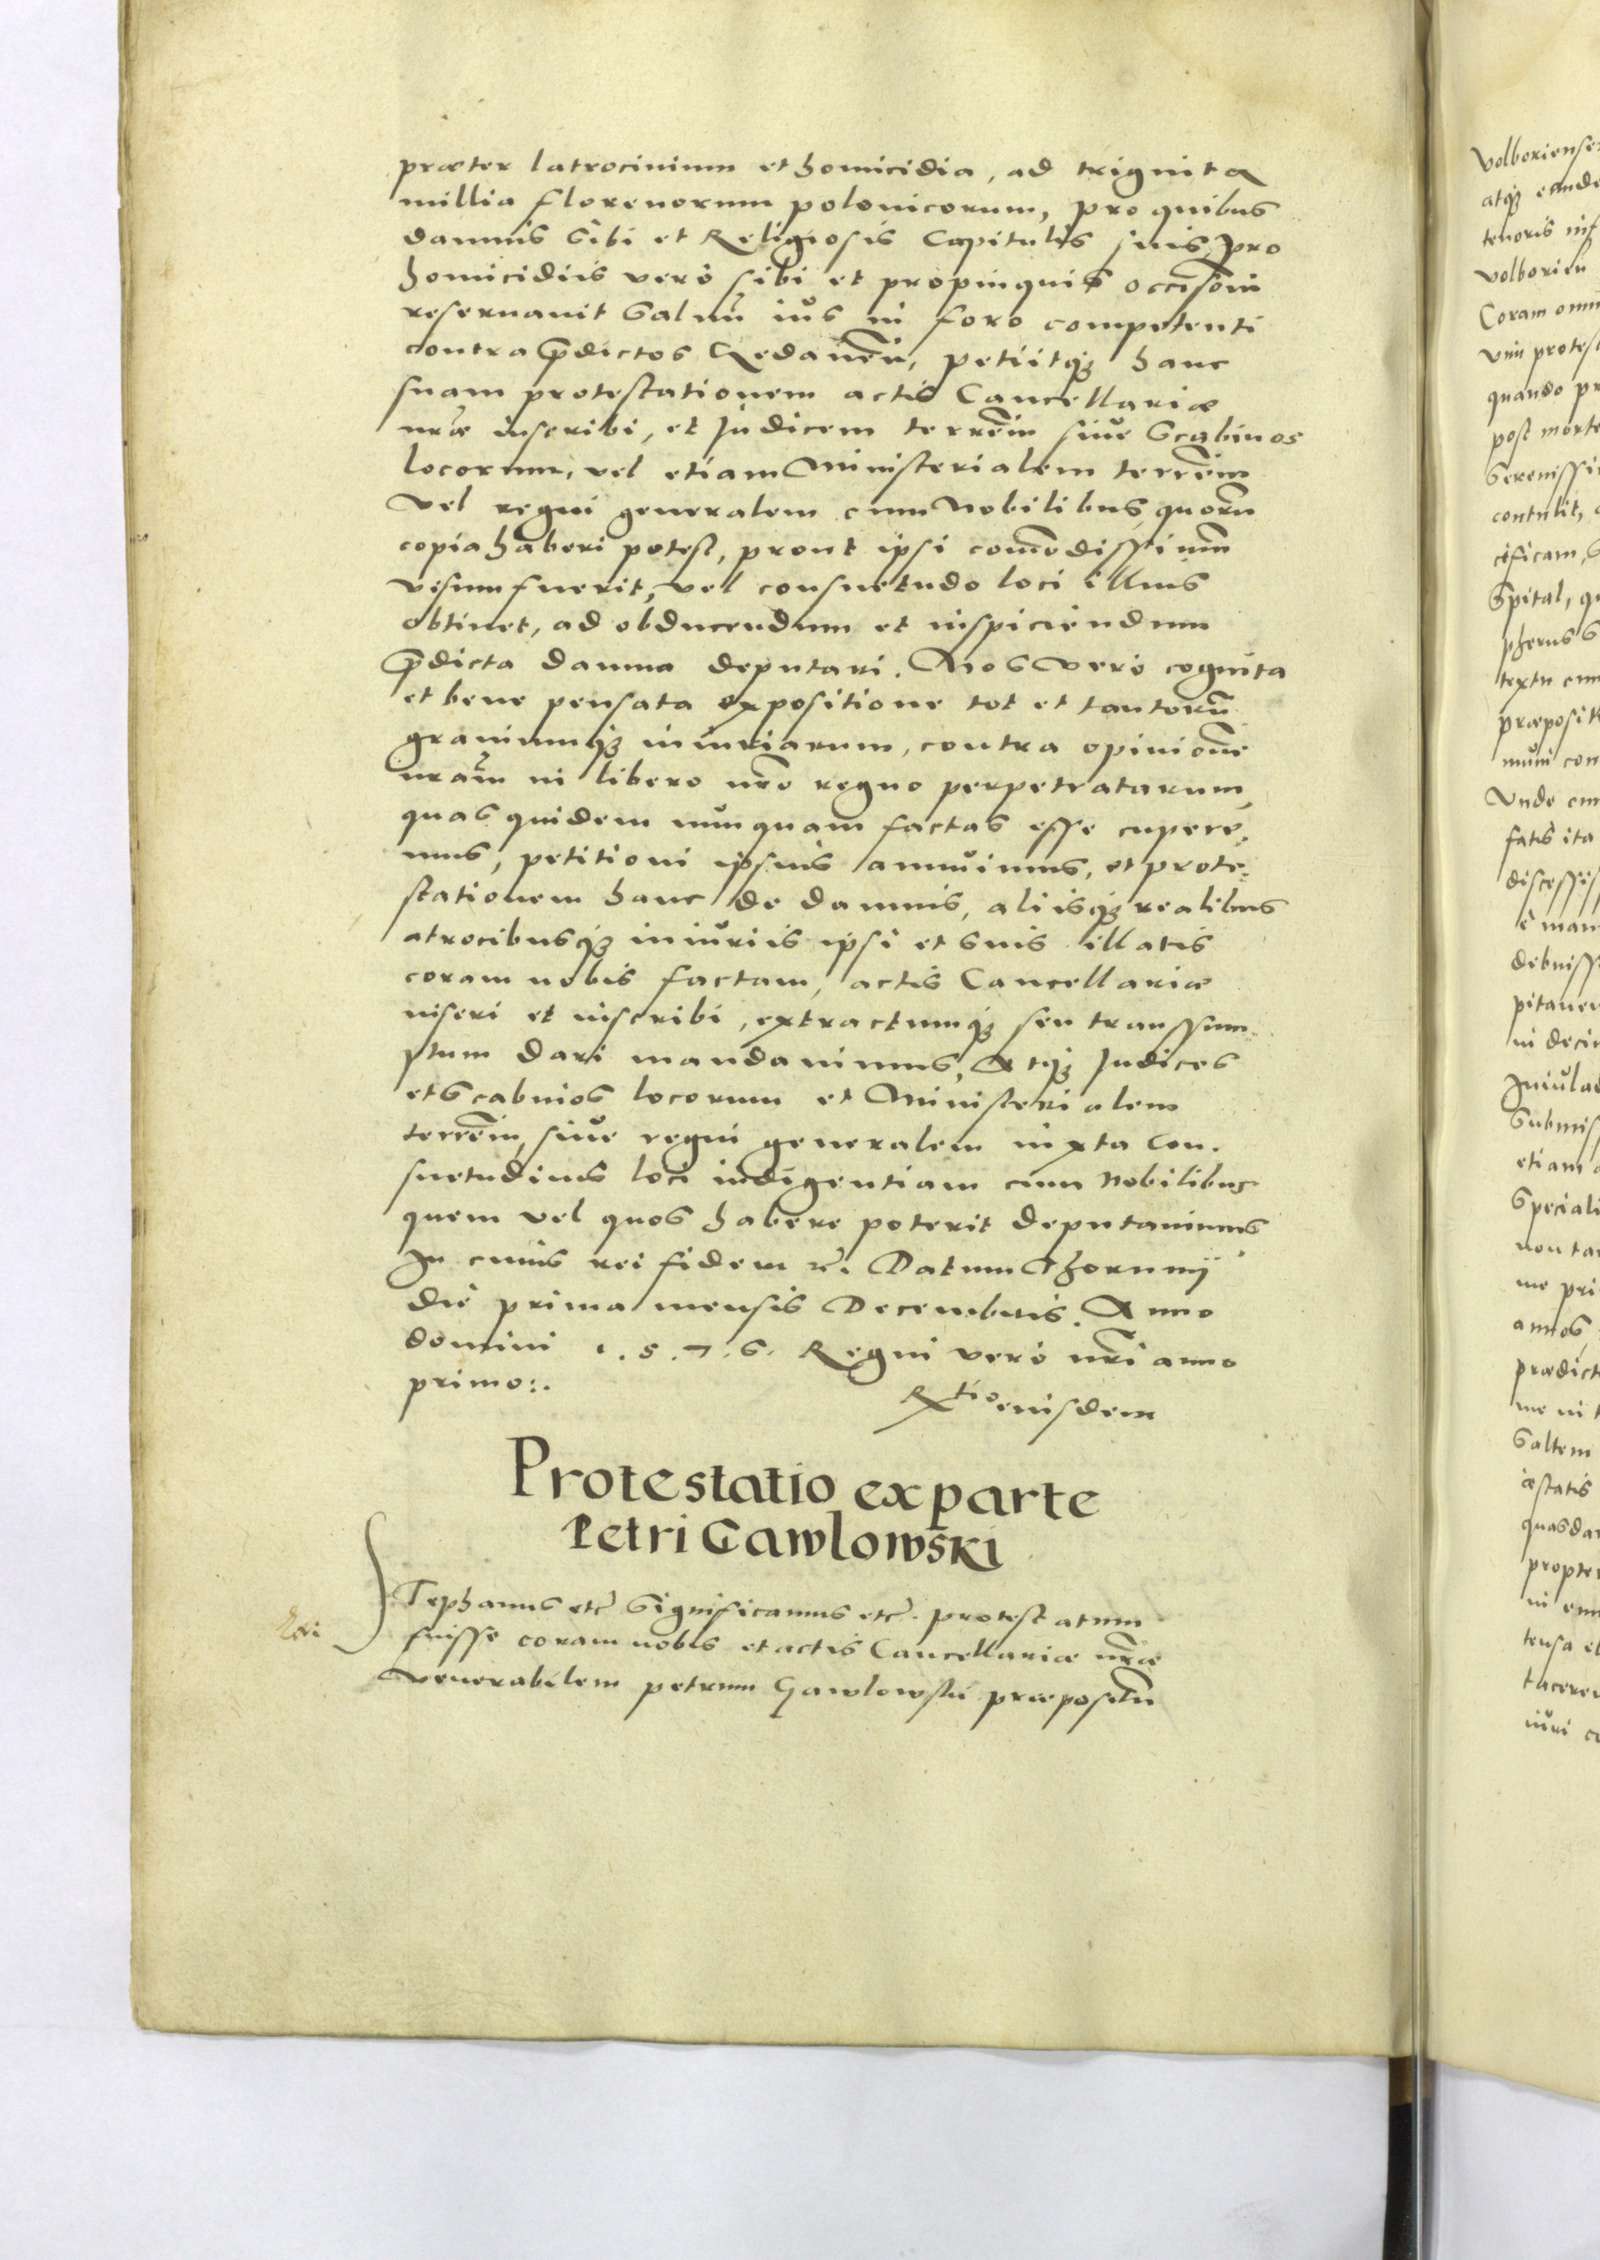 præter latrocinium et homicidia, ad triginta
millia florenorum polonicorum, pro quibus
damnis sibi et Religiosis Capitulis suis, pro
homicidiis verò sibi et propinquis occisorū
reseruauit saluū ius in foro competenti
contra p̄dictos Gedanēn, petiitq₃ hanc
suam protestationem actis Cancellariæ
nr̄æ inscribi, et Judicem terrēm siue Scabinos
locorum, vel etiam Ministerialem terrēm
vel regni generalem cum Nobilibus, quorū
copia haberi potest, prout ipsi com̄odissimū
visum fuerit, vel consuetudo loci illius
obtinet, ad obducendum et inspiciendum
p̄dicta damna deputari. Nos verò cognita
et bene pensata expositione tot et tantorū
grauiumq₃ iniuriarum, contra opinionē
nr̄am in libero nr̄o regno perpetratarum,
quas quidem nunquam factas esse cupere,
mus, petitioni ipsius annuimus, et prote,
stationem hanc de damnis, aliisq₃ realibus
atrocibusq₃ iniuriis ipsi et suis illatis
coram nobis factam, actis Cancellariæ
inseri et inscribi, extractumq₃ seu transsum,
ptum dari mandauimus, Atq₃ Judices
et Scabinos locorum et Ministerialem
terrēm, siue regni generalem iuxta con,
suetudinis loci indigentiam cum Nobilibus
quem vel quos habere poterit deputauimus
In cuius rei fidem etc. Datum Thorunij
die prima mensis Decembris. Anno
domini 1.5.7.6. Regni verò nr̄i anno
primo:.
Rᵗⁱᵒ eiusdem
Protestatio ex parte
Petri Gawlowski
STephanus etc̄ Significamus etc̄. protestatum
fuisse coram nobis et actis Cancellariæ nr̄æ
Venerabilem petrum Gawlowski præpositū
Volborienses
atq₃
tenoris
volborien
Coram
protes
quando
post morte
contulit,
cificam,
Spital,
textu
præposit
con
Vnde
fatis ita
discessis
debuiss
in deci
Submiss
etiam
Speciali
non
me pri
annos
prædict
me in
Saltem
æstatis
quasdam
propter
in
tensa et
iuri